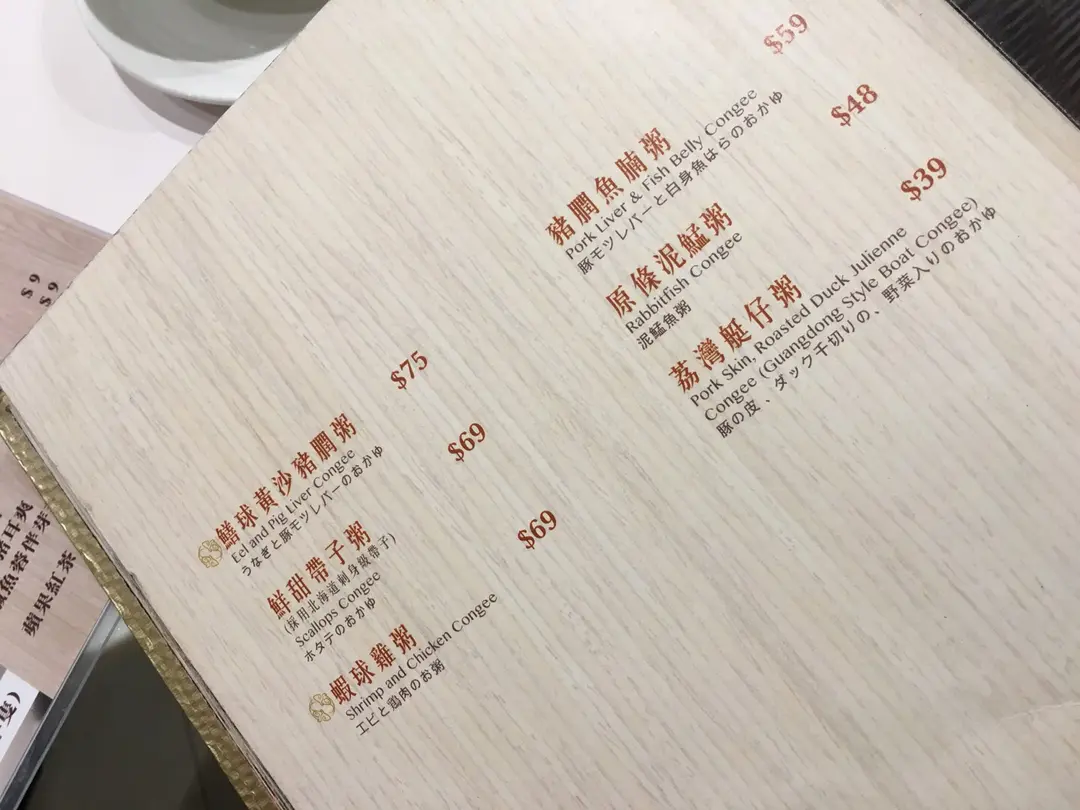 鱔球黃沙豬膶粥 $75
Eel and Pig Liver Congee
うなぎと豚モツレバーのおかゆ
鮮甜帶子粥 $69
(採用北海道刺身級帶子)
Scallops Congee
ホタテのおかゆ
蝦球雞粥 $69
Shrimp and Chicken Congee
エビと鶏肉のお粥
豬膶魚腩粥 $59
Pork Liver & Fish Belly Congee
豚モツレバーと白身魚はらのおかゆ
原條泥鯭粥 $48
Rabbitfish Congee
泥鯭魚粥
荔灣艇仔粥 $39
Pork Skin, Roasted Duck Julienne
Congee (Guangdong Style Boat Congee)
豚の皮、ダック千切りの、野菜入りのおかゆ
$9
$9
豬耳爽
魚蓉伴芽
蘋果紅茶